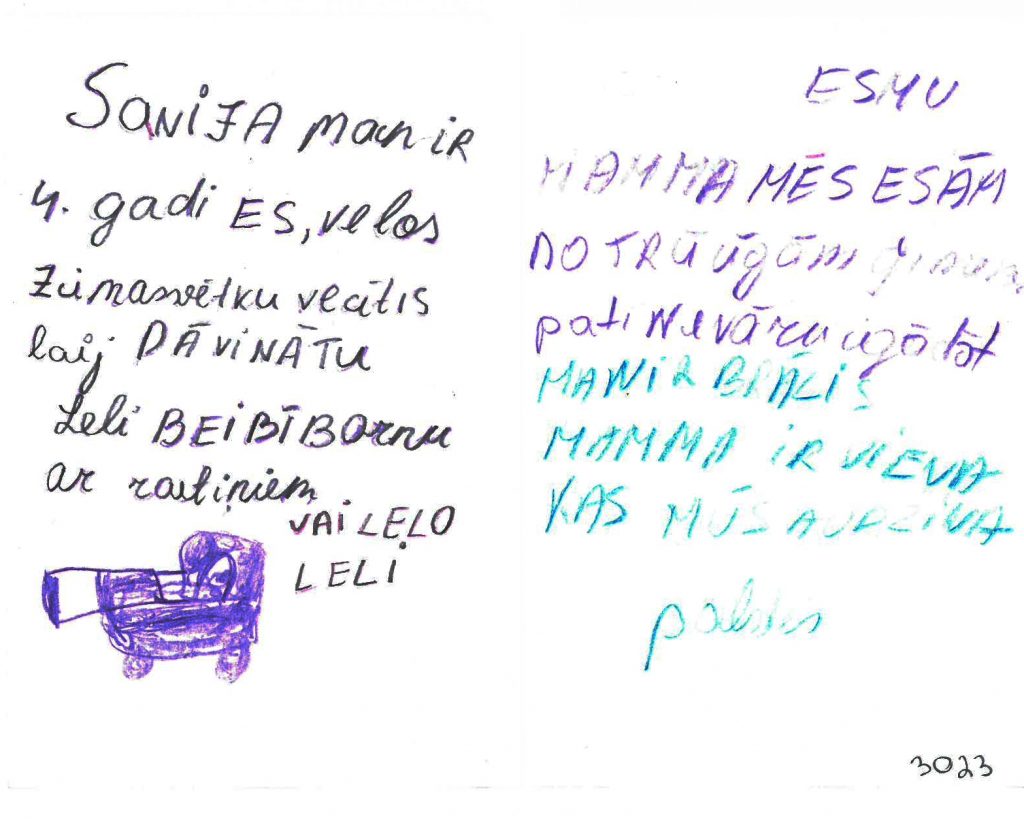 SANIJA man iR
4. gadi ES, velos
Zimasvētku vecītis
laij DĀViNĀTU
Leli BEiBĪBOrnu
ar ratiņiem
VAI LELO
LELi
ESMU
MAMMA MĒS ESĀM
NO TRŪ ūgām ģimm
pati Nevāru
MANiR BRĀLiS
MAMMA iR ViENA
KAS MŪS AUDZiNA
paldies
3023